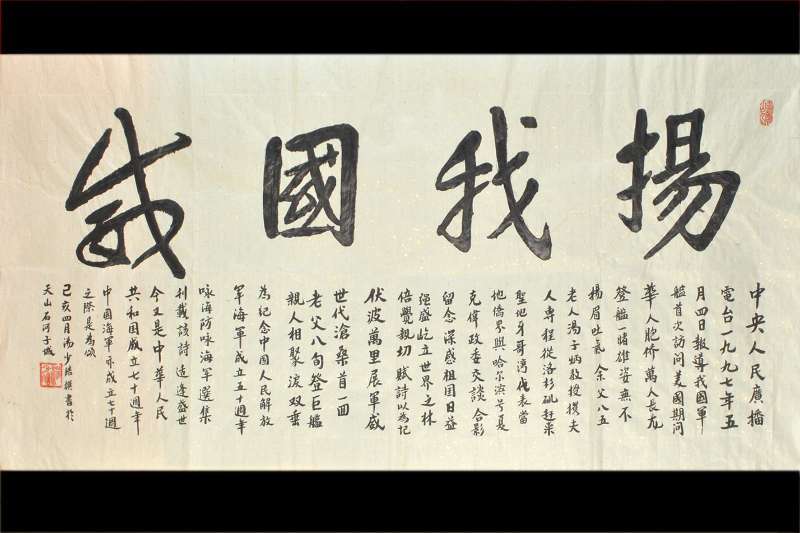 揚我國威
中央人民廣播
電台一九九七年五
月四日報導我國軍
艦首次訪问美國期间
華人胞僑萬人長龙
登艦一睹雄姿無不
揚眉吐氣 余父八五
老人湯子炳教授携夫
人專程從洛杉矶赶来
聖地牙哥湾代表當
地僑界與哈尔滨号夏
克偉政委交談合影
留念深感祖国日益
强盛屹立世界之林
倍覺親切賦詩以為记
伏波萬里展軍威
世代滄桑首一回
老父八旬登巨艦
親人相聚淚双垂
為纪念中国人民解放
军海軍成立五十週年
咏海防咏海军選集
刊載該詩适逢盛世
今又是中華人民
共和国成立七十週年
中國海軍亦成立七十週
之際是為頌
己亥四月湯少撰書於
天山石河子城